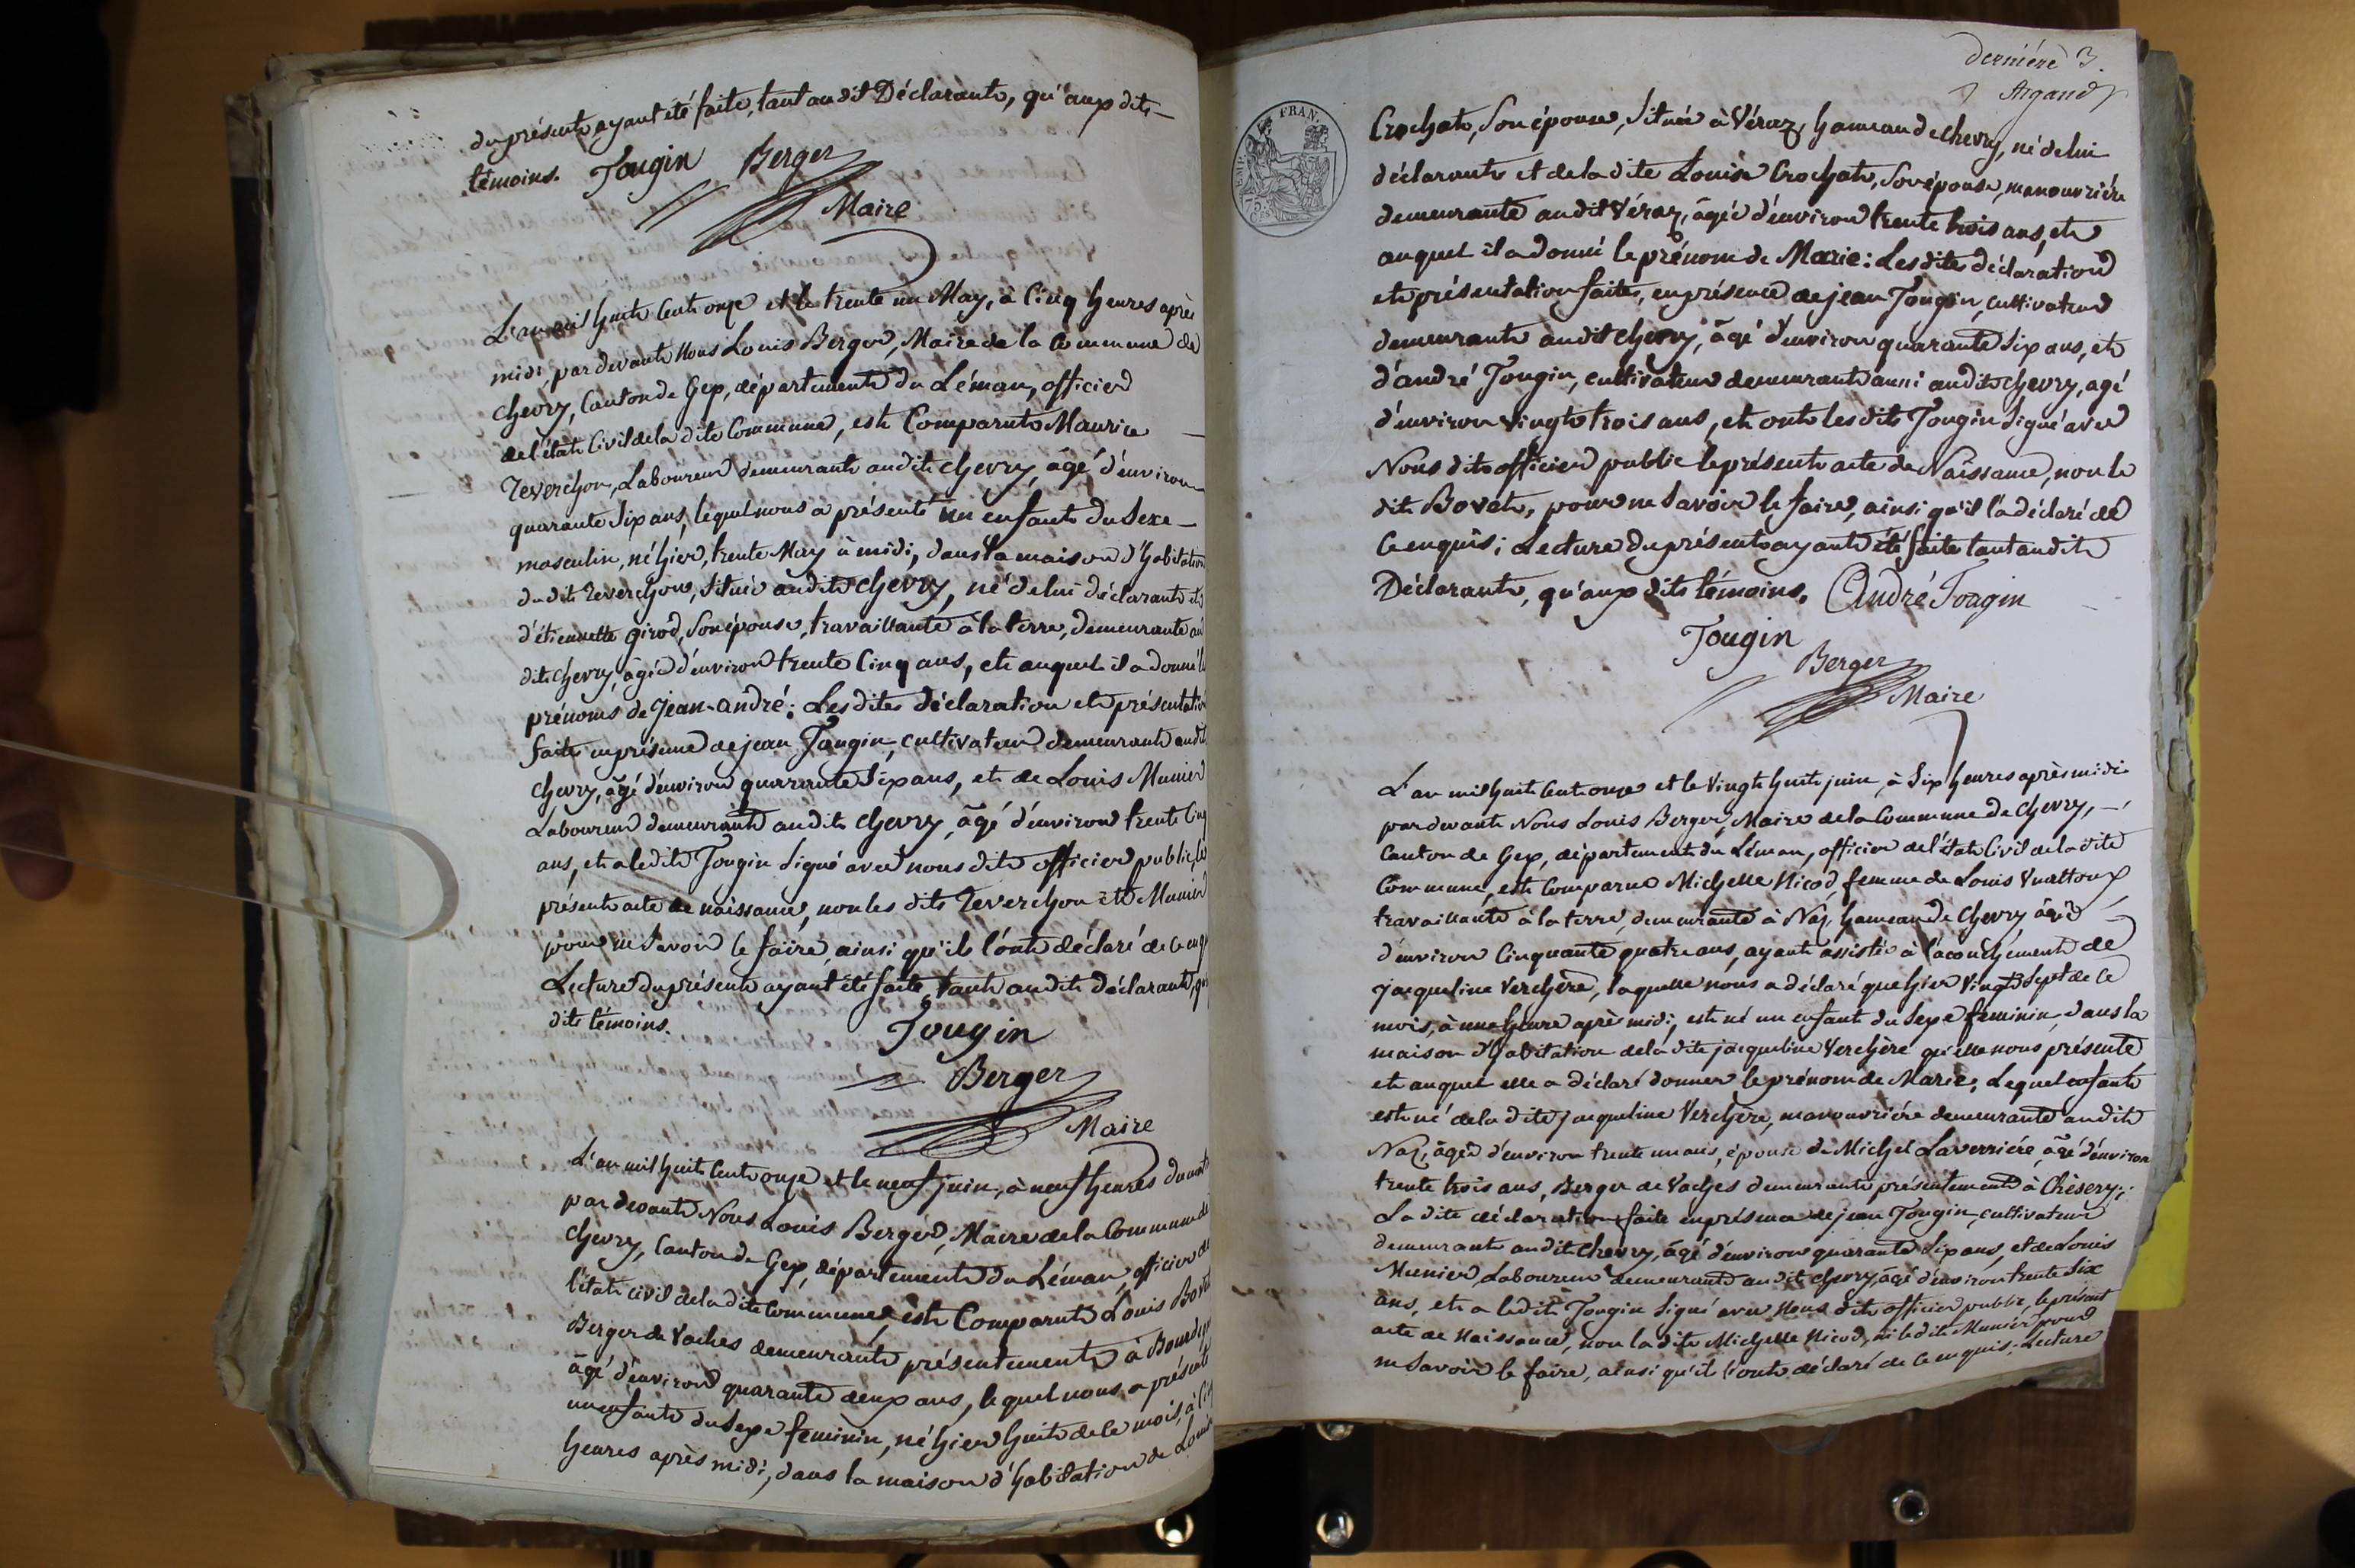 du présent ayant été faite, tant audit Déclarant, qu'aux dits
témoins. Tougin Berger
Maire
L'an mil huit cent onze et le trente un May, à Cinq heures après
midi, pardevant Nous Louis Berger, Maire de la Commune de
Chevry, Canton de Gex, département du Léman, officier
de l'état Civil de la dite Commune, est Comparut Maurice
Reverchon, Laboureur demeurant audit chevry, âgé d'environ
quarante Six ans, lequel nous a présenté un enfant du Sexe
masculin, né hier, trente May à midi, dans la maison d'habitation
du dit Reverchon, Située audit Chevry, né de lui déclarant et
d'étiennette girod, Son épouse, travaillante à la terre, demeurante au
dit Chevry, âgée d'environ trente Cinq ans, et auquel il a donné les
prénoms de Jean-andré: Les dites déclaration et présentation
faites en présence de jean Tougin, cultivateur demeurant audit
chevry, âgé d'environ quarante Six ans, et de Louis Munier
Laboureur demeurant audit Chevry, âgé d'environ trente Cinq
ans, et a ledit Tougin Signé avec nous dit officier public, le
présent acte de naissance, non les dits Reverchon et Munier
pour ne Savoir le faire, ainsi qu'ils l'ont déclaré de ce enquis
Lecture du présent ayant été faite, tant audit déclarant, qu'aux
dits témoins. Tougin
Berger
Maire
L'an mil huit Cent onze et le neuf juin, à neuf heures du matin
par devant Nous Louis Berger, Maire de la Commune de
Chevry, Canton de Gex, département du Léman, officier de
l'état civil de la dite Commune, est Comparut Louis Bovet
Berger de Vaches demeurant présentement à
âgé d'environ quarante deux ans, lequel nous a présenté
un enfant du Sexe feminin, né hier huit de ce mois, à Cinq
heures après midi, dans la maison d'habitation de Louise
dernière 3.
Argand
EMP. FRAN.
75 C.
Crochat, Son épouse, Située à Véraz, hameau de Chevry, né de lui
déclarant et de la dite Louise Crochat, Son épouse, manouvrière
demeurante audit Véraz, âgée d'environ trente trois ans, et
auquel il a donné le prénom de Marie: Les dites déclaration
et présentation faites, en présence de jean Tougin, cultivateur
demeurant audit Chevry, âgé d'environ quarante Six ans, et
d'andré Tougin, cultivateur demeurant aussi audit chevry, agé
d'environ vingt trois ans, et ont les dits Tougin Signé avec
Nous dit officier public le présent acte de Naissance, non le
dit Bovet, pour ne Savoir le faire, ainsi qu'il l'a déclaré de
Ce enquis; Lecture du présent ayant été faite tant audit
Déclarant, qu'aux dits témoins. André Tougin
Tougin
Berger
Maire
L'an mil huit Cent onze et le Vingt huit juin, à Six heures après midi
pardevant Nous Louis Berger, Maire de la Commune de Chevry,
Canton de Gex, département du Léman, officier de l'état Civil de la dite
Commune, est Comparue Michelle Nicod, femme de Louis
travaillante à la terre, demeurante à Naz, hameau de Chevry âgée
d'environ Cinquante quatre ans, ayant assistée à l'acouchement de
jacqueline Verchère, laquelle nous a déclaré que hier Vingt Sept de ce
mois, à une heure après midi, est né un enfant du Sexe feminin, dans la
maison d'habitation de la dite jacqueline Verchère qu'elle nous présente
et auquel elle a déclaré donner le prénom de Marie, Lequel enfant
est né de la dite jacqueline Verchère, manouvrière demeurante audit
Naz, âgée d'environ trente un ans, épouse de Michel Laverrière, âgé d'environ
trente trois ans, Berger de Vaches demeurant présentement à Chésery;
La dite déclaration faite en présence de jean Tougin, cultivateur
demeurant audit Chevry, âgé d'environ quarante Six ans, et de Louis
Munier, Laboureur demeurant audit chevry, âgé d'environ trente Six
ans, et a ledit Tougin Signé avec Nous dit officier public, le présent
acte de Naissance, non la dite Michelle Nicod, ni le dit Munier pour
ne Savoir le faire, ainsi qu'il l'ont déclaré de ce enquis; Lecture